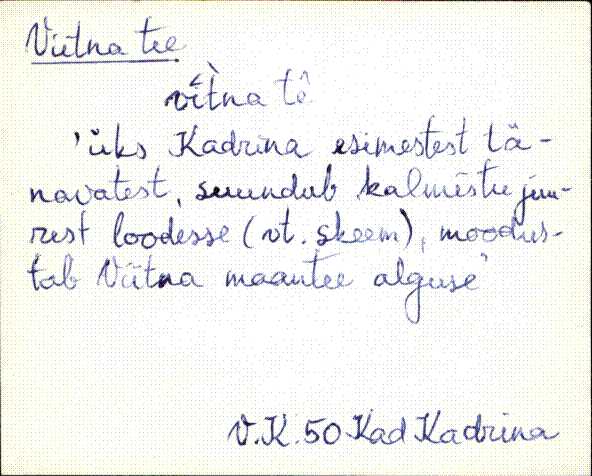 Viitna tee
vì̬tna tê
'üks Kadrina esimestest tä-
navatest, suundub kalmistu juu-
rest loodesse (vt. skeem), moodus-
tab Viitna maantee alguse'
V.K. 50 Kad Kadrina